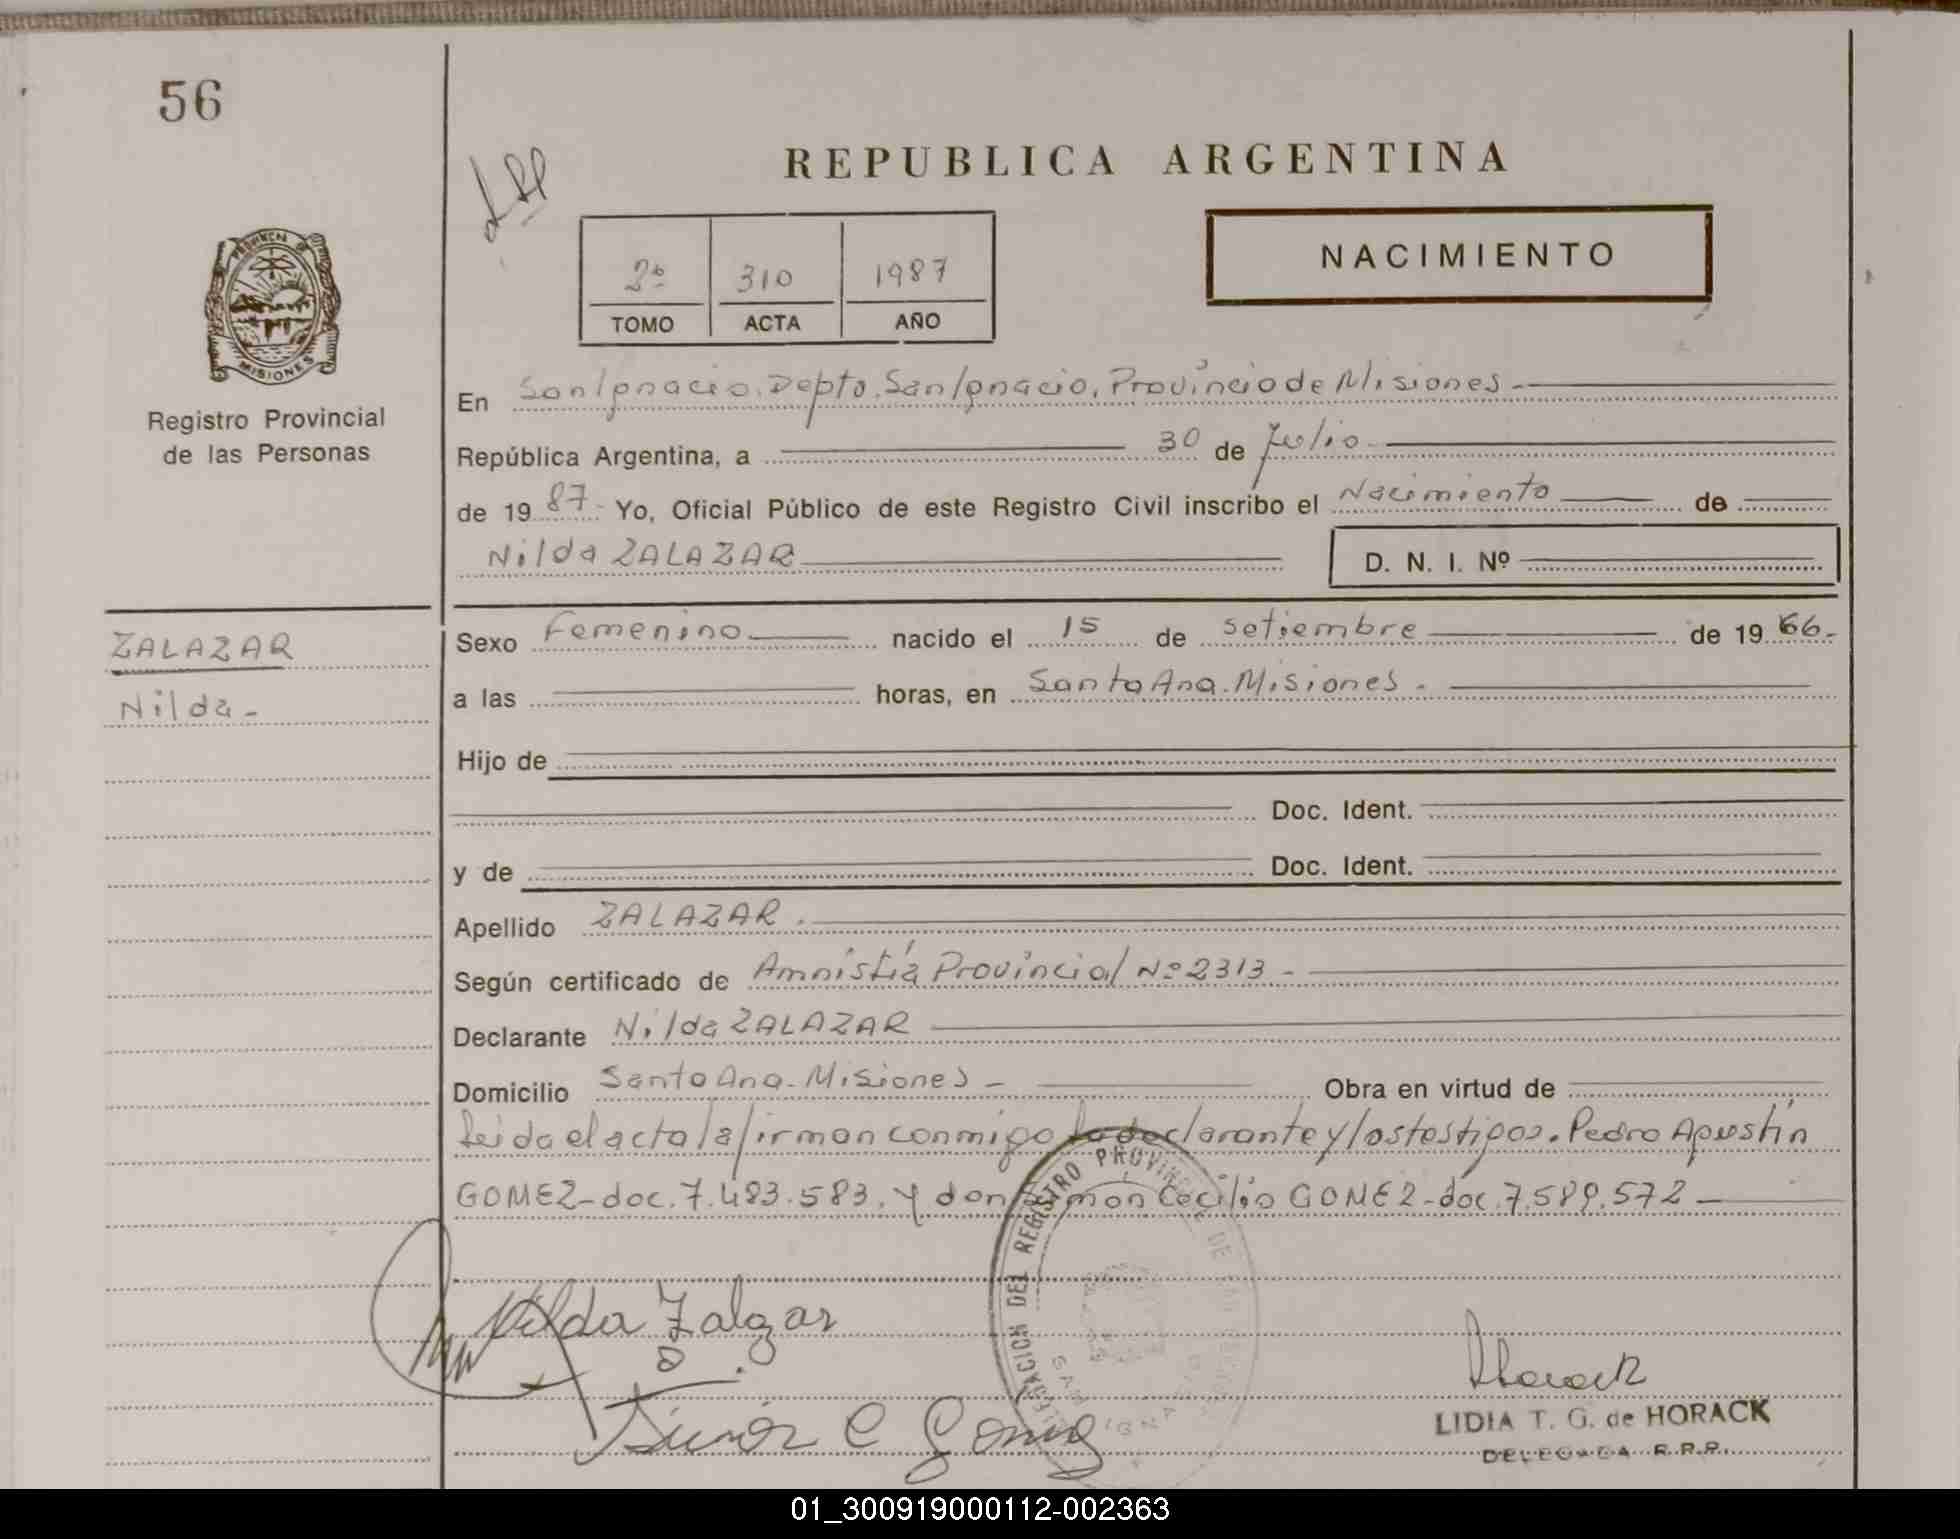 56
REPUBLICA ARGENTINA
PROVINCIA DE
MISIONES
Registro Provincial
de las Personas
2º 310 1987
TOMO ACTA AÑO
NACIMIENTO
En San Ignacio. Depto. San Ignacio, Provincia de Misiones.-
República Argentina, a 30 de Julio
de 1987.- Yo, Oficial Público de este Registro Civil inscribo el Nacimiento de
Nilda ZALAZAR D. N. I. Nº
ZALAZAR
Nilda-
Sexo Femenino nacido el 15 de setiembre de 1966.-
a las horas, en Santa Ana. Misiones.
Hijo de
Doc. Ident.
y de Doc. Ident.
Apellido ZALAZAR.
Según certificado de Amnistía Provincial Nº 2313-
Declarante Nilda ZALAZAR
Domicilio Santa Ana- Misiones- Obra en virtud de
Leida el acta la firman conmigo la declarante y los testigos. Pedro Agustín
GOMEZ-doc. 7.483.583. y don Simón Cecilio GOMEZ-doc. 7.589.572-
DELEGACION DEL REGISTRO PROVINCIAL DE LAS PERSONAS
SAN IGNACIO
Nilda Zalazar
Simón C Gomez
Horack
LIDIA T. G. de HORACK
DELEGADA R.P.P.
01_300919000112-002363